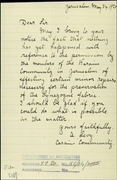 Jerusalem, May 24,
Dear Sir
May I bring to your
notice the fact that nothing
yet has happened with
regards to the permission by
the members of the Karaim
Community in Jerusalem of
effecting certain minor repairs
necessary for the preservation
of the Synagogue fabric
I should be glad if you
could do what is possible
in the matter
Yours faithfully
Levy
Karaim Community